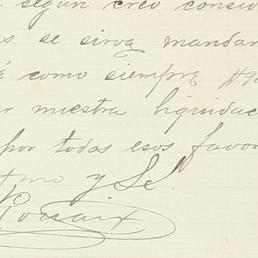 segun creo consid
s se sirva mandar
é como siempre
r nuestra liquidac
por todas esos favor
y S.S.